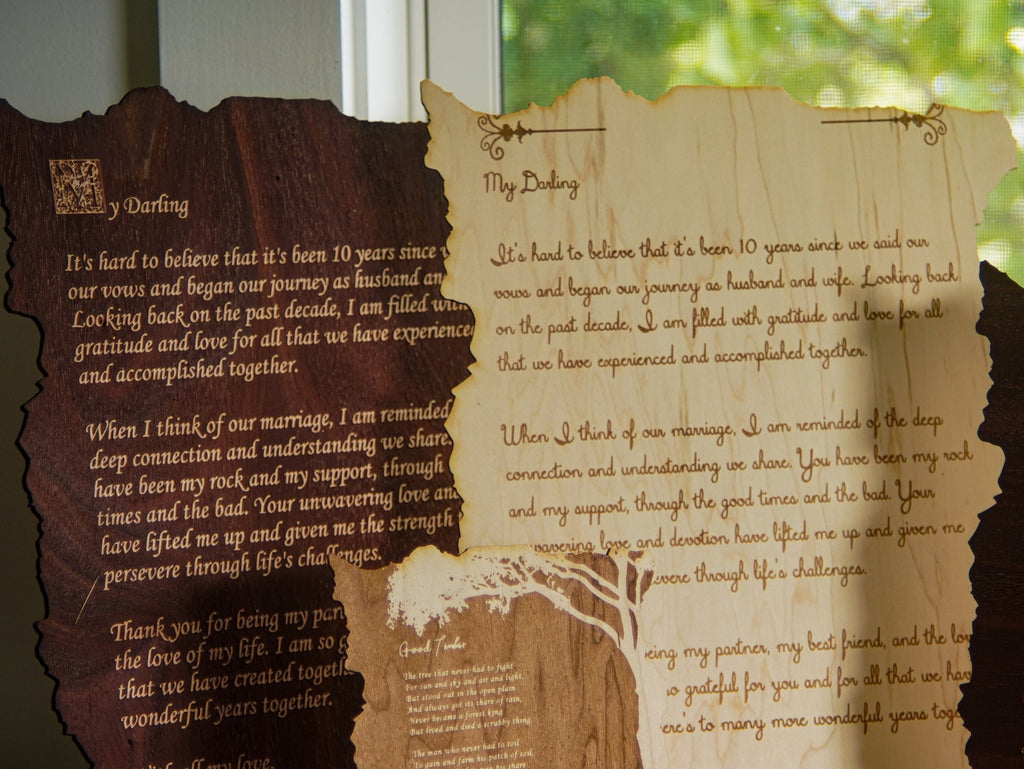 My Darling
It's hard to believe that it's been 10 years since
our vows and began our journey as husband an
Looking back on the past decade, I am filled with
gratitude and love for all that we have experience
and accomplished together.
When I think of our marriage, I am reminded
deep connection and understanding we share.
have been my rock and my support, through
times and the bad. Your unwavering love an
have lifted me up and given me the strength
persevere through life's challenges.
Thank you for being my par
the love of my life. I am so g
that we have created togeth
wonderful years together.
all my love,
My Darling
It's hard to believe that it's been 10 years since we said our
vows and began our journey as husband and wife. Looking back
on the past decade, I am filled with gratitude and love for all
that we have experienced and accomplished together.
When I think of our marriage, I am reminded of the deep
connection and understanding we share. You have been my rock
and my support, through the good times and the bad. Your
wavering love and devotion have lifted me up and given me
evere through life's challenges.
eing my partner, my best friend, and the lov
so grateful for you and for all that we hav
ere's to many more wonderful years toge
Good Timber
The tree that never had to fight
For sun and sky and air and light,
But stood out in the open plain
And always got its share of rain,
Never became a forest king
But lived and died a scrubby thing.
The man who never had to toil
To gain and farm his patch of soil,
his share